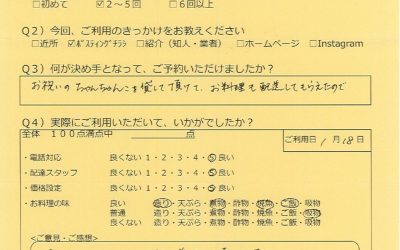 □初めて ☑２～５回 □６回以上
Ｑ２）今回、ご利用のきっかけをお教えください
□近所 ☑ポスティングチラシ □紹介（知人・業者） □ホームページ □Instagram
Ｑ３）何が決め手となって、ご予約いただけましたか？
お祝いのちゃんちゃんこを貸して頂けて、お料理も配送してもらえたので
Ｑ４）実際にご利用いただいて、いかがでしたか？
全体 １００点満点中 点
ご利用日 1 月 18日
・電話対応 良くない１・２・３・４・５良い
・配達スタッフ 良くない１・２・３・４・５良い
・価格設定 良くない１・２・３・４・５良い
・お料理の味 良い 造り・天ぷら・煮物・酢物・焼魚・ご飯・吸物
普通 造り・天ぷら・煮物・酢物・焼魚・ご飯・吸物
良くない 造り・天ぷら・煮物・酢物・焼魚・ご飯・吸物
＜ご意見・ご感想＞